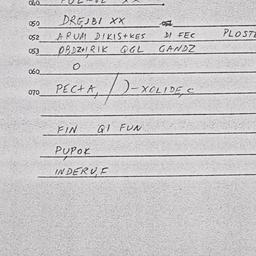 050 DRGJBI XX
052 ARUM DIKIS+KES DI FEC PLOST
053 QGL GANDZ
060 O
070 PEC+A, /)-XOLIDE, C
FIN QI FUN
PUPOK
INDERV, F